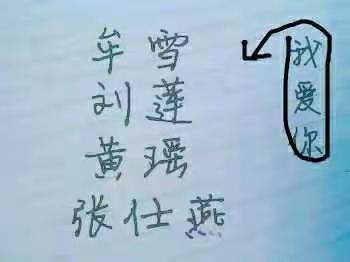 牟雪
刘莲
黄瑶
张仕燕
我爱你